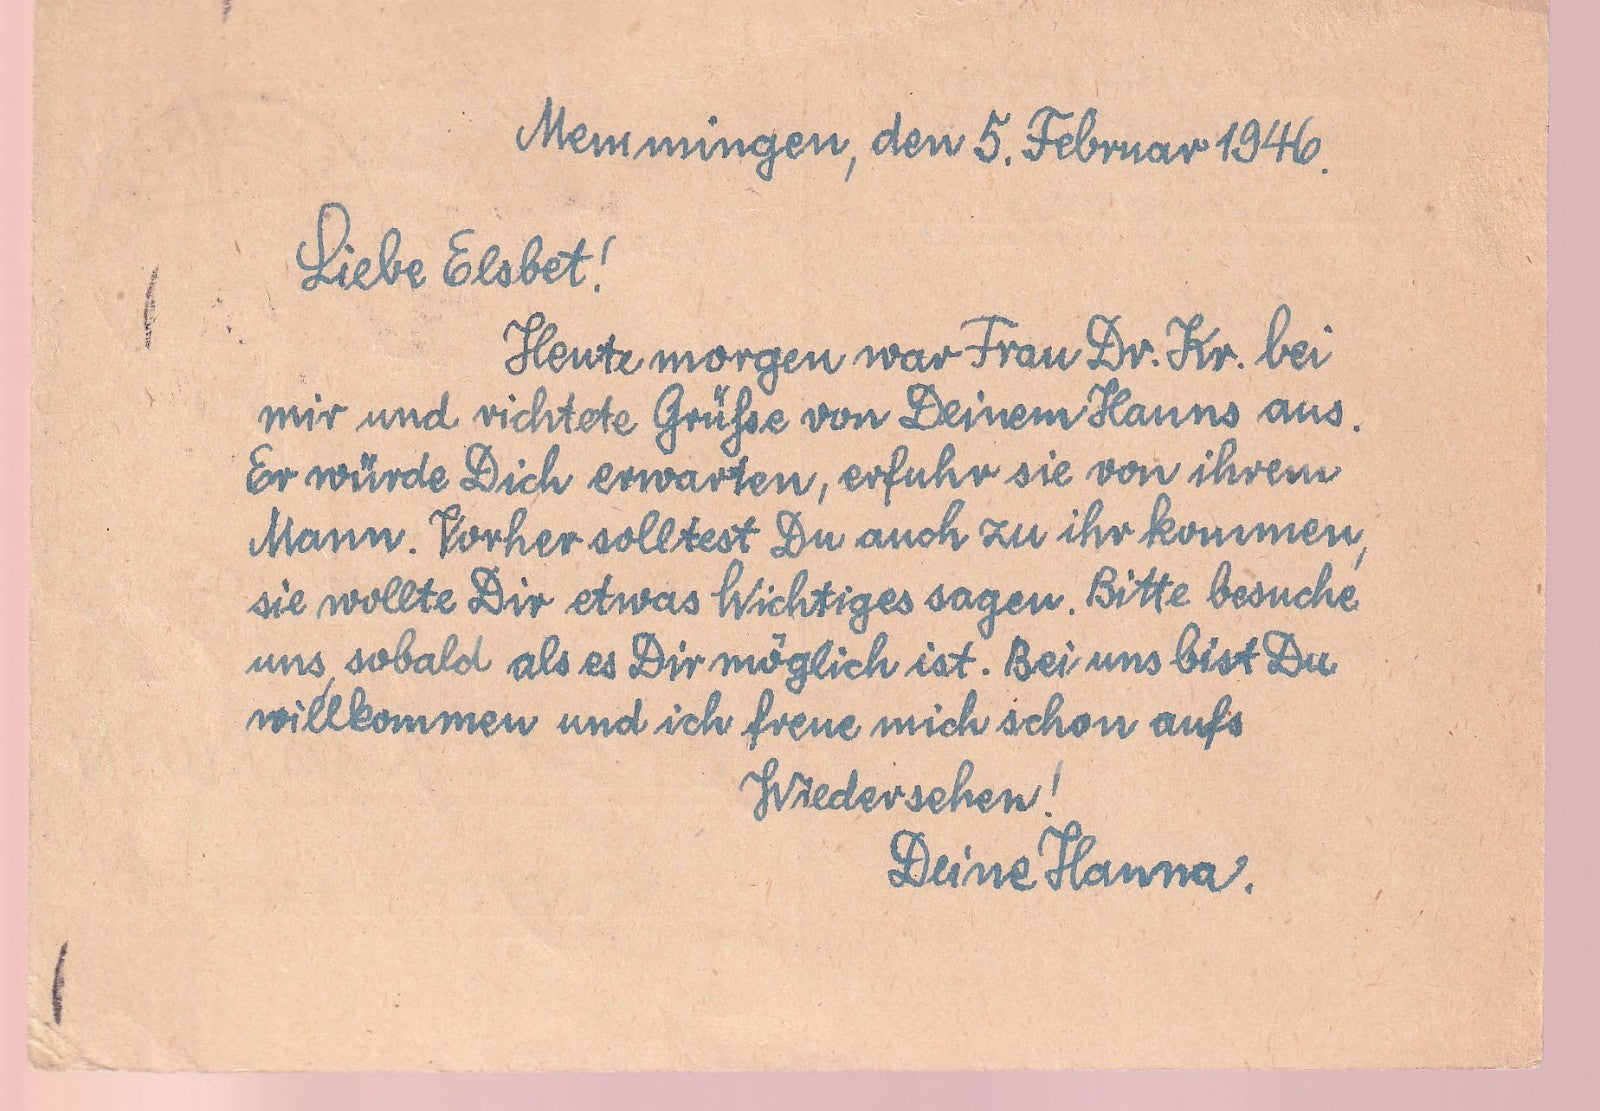 Memmingen, den 5. Februar 1946.
Liebe Elsbet!
Heute morgen war Frau Dr. Kr. bei
mir und richtete Grüße von Deinem Hanns aus.
Er würde Dich erwarten, erfuhr sie von ihrem
Mann. Vorher solltest Du auch zu ihr kommen,
sie wollte Dir etwas Wichtiges sagen. Bitte besuche
uns, sobald als es Dir möglich ist. Bei uns bist Du
willkommen und ich freue mich schon aufs
Wiedersehen!
Deine Hanna.